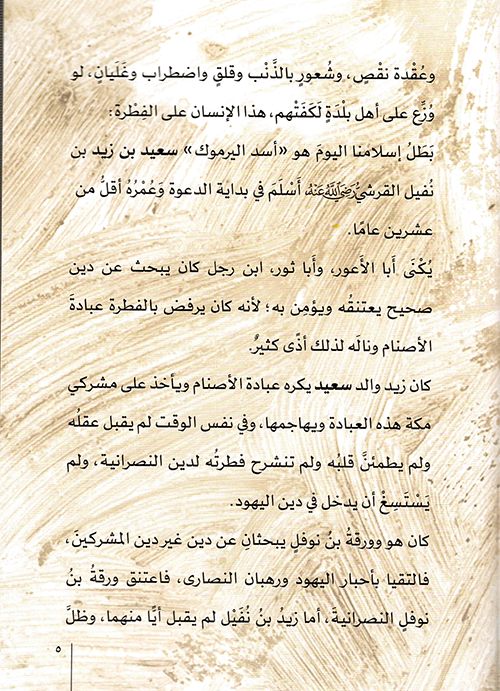 وعُقْدة نقْصٍ، وشُعورٍ بالذَّنْب وقلقٍ واضطراب وغَلَيانٍ، لو
وُزِّع على أهل بلْدَةٍ لَكَفَتْهم، هذا الإنسان على الفِطْرة:
بَطَلُ إسلامنا اليومَ هو «أسد اليرموك» سعيد بن زيد بن
نُفيل القرشيُّ رَضِيَ اللَّهُ عَنْهُ، أَسْلَمَ في بداية الدعوة وَعُمْرُهُ أقلُّ من
عشرين عامًا.
يُكْنَى أَبا الأَعور، وأَبا ثور، ابن رجل كان يبحث عن دين
صحيح يعتنقُه ويؤمِن به؛ لأنه كان يرفض بالفطرة عبادةَ
الأصنام ونالَه لذلك أذًى كثيرٌ.
كان زيد والد سعيد يكره عبادة الأصنام ويأخذ على مشركي
مكة هذه العبادة ويهاجمها، وفي نفس الوقت لم يقبل عقلُه
ولم يطمئنَّ قلبُه ولم تنشرح فطرتُه لدين النصرانية، ولم
يَسْتَسِغْ أن يدخل في دين اليهود.
كان هو وورقةُ بنُ نوفلٍ يبحثانِ عن دين غير دين المشركينَ،
فالتقيا بأحبار اليهود ورهبان النصارى، فاعتنق ورقةُ بنُ
نوفلٍ النصرانيةَ، أما زيدُ بنُ نُفَيْل لم يقبل أيًّا منهما، وظلَّ
٥